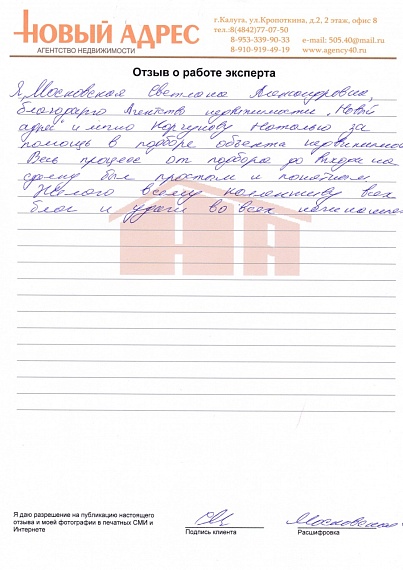 НОВЫЙ АДРЕС
АГЕНТСТВО НЕДВИЖИМОСТИ
г.Калуга, ул.Кропоткина, д.2, 2 этаж, офис 8
тел.:8(4842)77-07-50
8-953-339-90-33 e-mail: 505.40@mail.ru
8-910-919-49-19 www.agency40.ru
Отзыв о работе эксперта
Я, Московская Светлана Александровна,
благодарю Агентство недвижимости „Новый
адрес" и лично Корчунову Наталью за
помощь в подборе объекта недвижимости
Весь процесс от подбора до выхода на
сделку был простым и понятным
Желаю всему коллективу всех
благ и удачи во всех начинаниях
Я даю разрешение на публикацию настоящего
отзыва и моей фотографии в печатных СМИ и
Интернете
Подпись клиента
Московская
Расшифровка